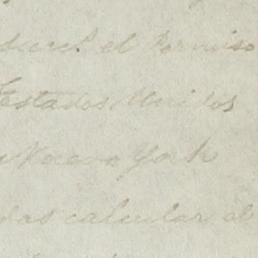 el Permiso
Estados Unidos
Nueva York
calcular el